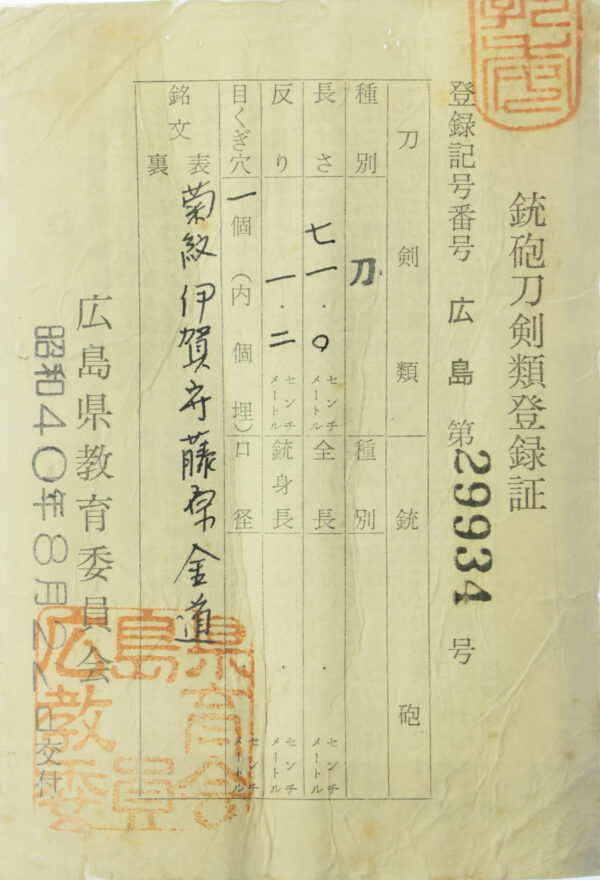 銃砲刀剣類登録証
登録記号番号 広島 第29934号
刀剣類 銃砲
種別 刀 種別
長さ 七一.〇 センチメートル 全長 . センチメートル
反り 一.二 センチメートル 銃身長 . センチメートル
目くぎ穴 一個(内 個埋) 口径 . センチメートル
銘文 表 菊紋伊賀守藤原金道
裏
広島県教育委員会
昭和40年8月2 日交付
広島県教育委員会